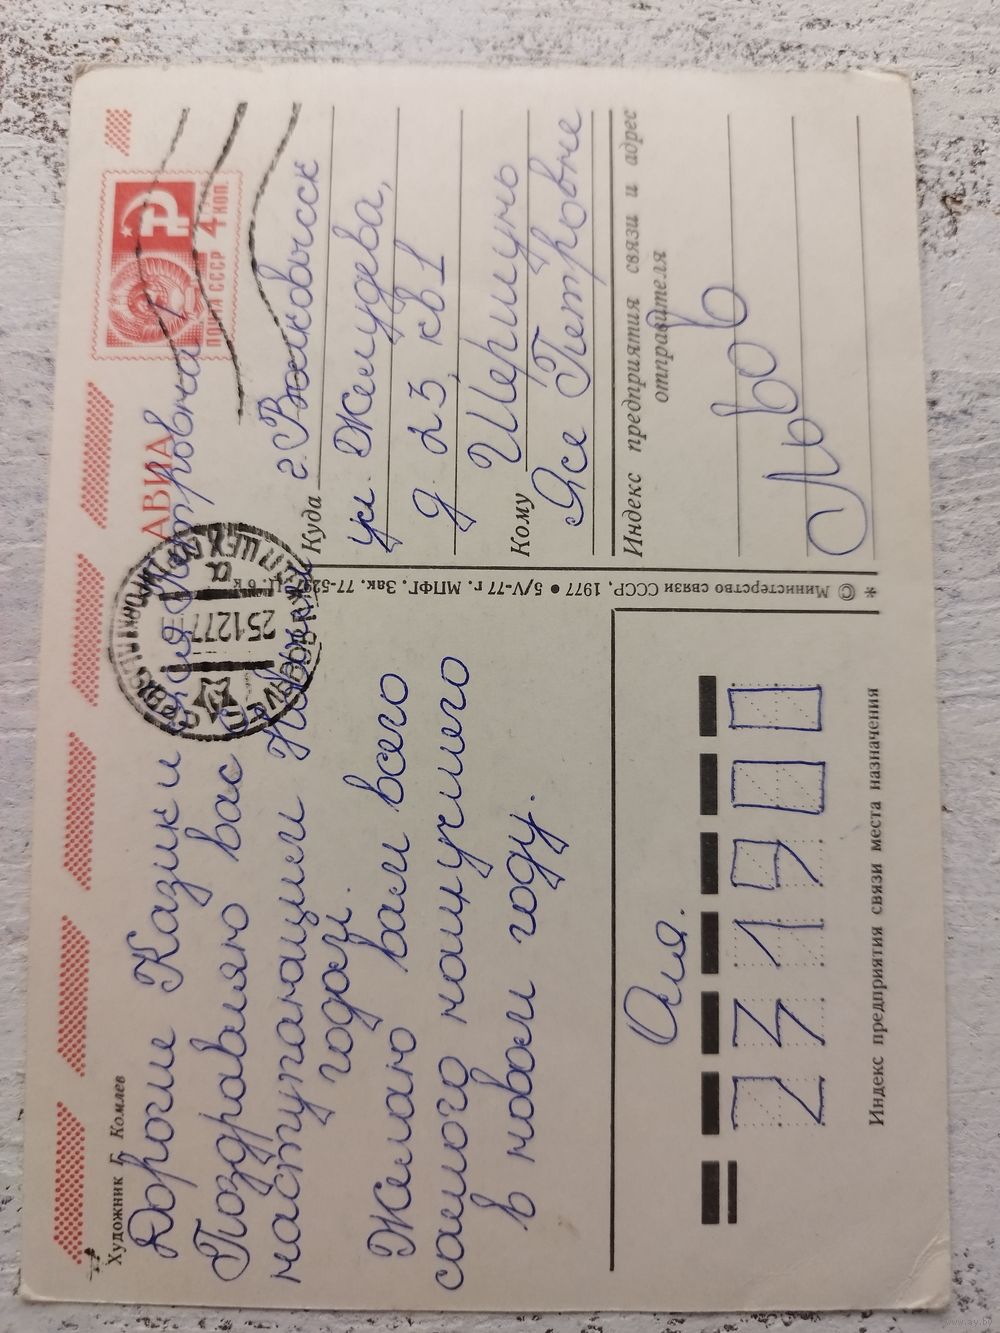 Художник Г. Комлев
АВИА
ПОЧТА СССР 4 КОП.
25 12 77
Дорогие Казик и Яся Петровна
Поздравляю вас с
наступающим Новым
годом.
Желаю вам всего
самого наилучшего
в новом году.
Оля.
Куда г. Волковысск
ул. Жилудева,
д. 23, кв 1
Кому Шершунь
Ясе Петровне
Индекс предприятия связи и адрес
отправителя
Львов
© Министерство связи СССР, 1977 • 5/V-77 г. МПФГ. Зак. 77-529. Ц. 6 к.
231900
Индекс предприятия связи места назначения
www.ay.by